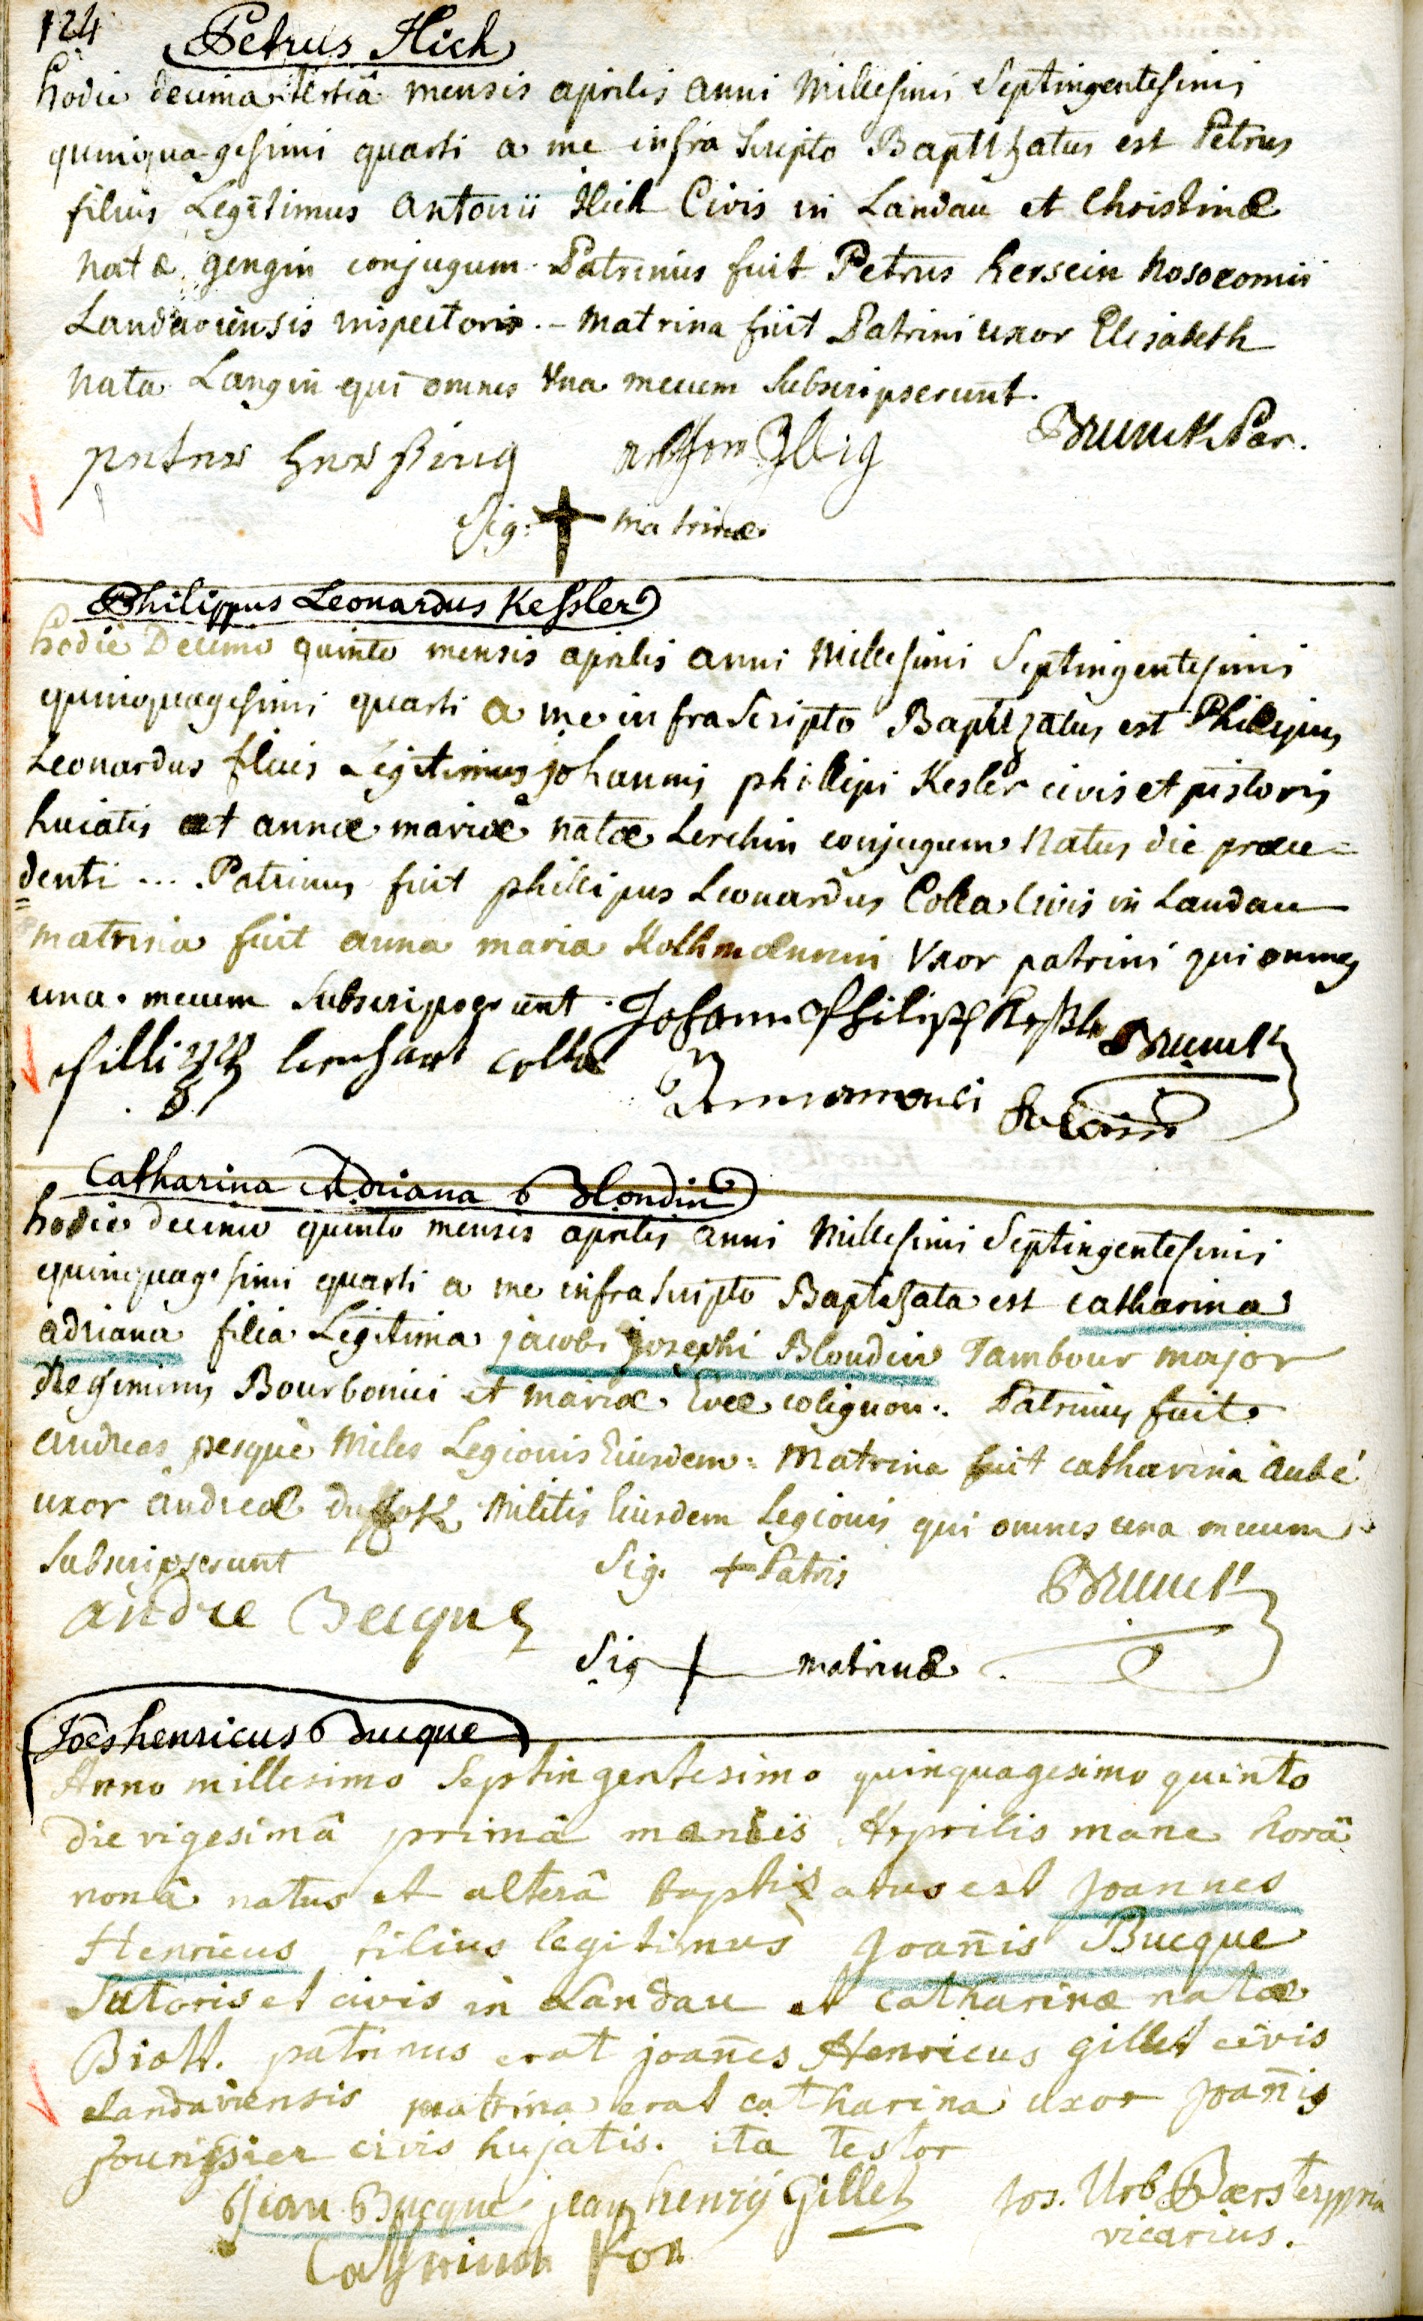 124
Petrus Hick
hodie decima tertiâ mensis aprilis anni Millesimi Septingentesimi
quinquagesimi quarti a me infra scripto Baptizatus est Petrus
filius Legitimus Antonii Hick Civis in Landau et Christinæ
natæ gengin conjugum. Patrinus fuit Petrus hersein Nosocomii
Landaviensis inspector. – Matrina fuit Patrini uxor Elisabeth
nata Langin qui omnes Una mecum Subscripserunt.
Brunck Par.
peter hersing
Sig: + matrinæ
Philippus Leonardus Kessler
hodie Decimo quinto mensis aprilis anni Millesimi Septingentesimi
quinquagesimi quarti a me infra Scripto Baptizatus est Philippus
Leonardus filius Legitimus johannis phillipi Kesler civis et pistoris
huiatis et annæ mariæ natæ Lerchin conjugum natus die præce=
denti ... Patrinus fuit phillipus Leonardus Colla Civis in Landau
matrina fuit anna maria Uxor patrini qui omnes
una mecum Subscripserunt. Johann Philipp Keßler Brunck
fillipp lenhart colla
Catharina Adriana Blondin
hodie decimo quinto mensis aprilis anni Millesimi Septingentesimi
quinquagesimi quarti a me infra Scripto Baptizata est catharina
adriana filia Legitima jacobi josephi Blondin Tambour major
Regiminis Bourbonici et mariæ Evæ colignon. Patrinus fuit
andreas pesquè Miles Legionis Eiusdem. Matrina fuit catharina aubé
uxor andreæ Militis Eiusdem Legionis qui omnes una mecum
Subscripserunt Sig. + Patris Brunck
andre Becque
Sig + matrinæ
Joẽs henricus Bucque
Anno millesimo Septingentesimo quinquagesimo quinto
die vigesimâ primâ mensis Aprilis mane horâ
nonâ natus et alterâ baptizatus est Joannes
Henricus filius legitimus Joan̄is Bucque
Sutoris et civis in Landau et Catharinæ natæ
patrinus erat joan̄es Henricus gillet civis
Landaviensis matrina erat catharina uxor Joan̄is
civis hujatis. ita testor
Jean Bucque jean henrÿ Gillet Jos. Urb
vicarius.